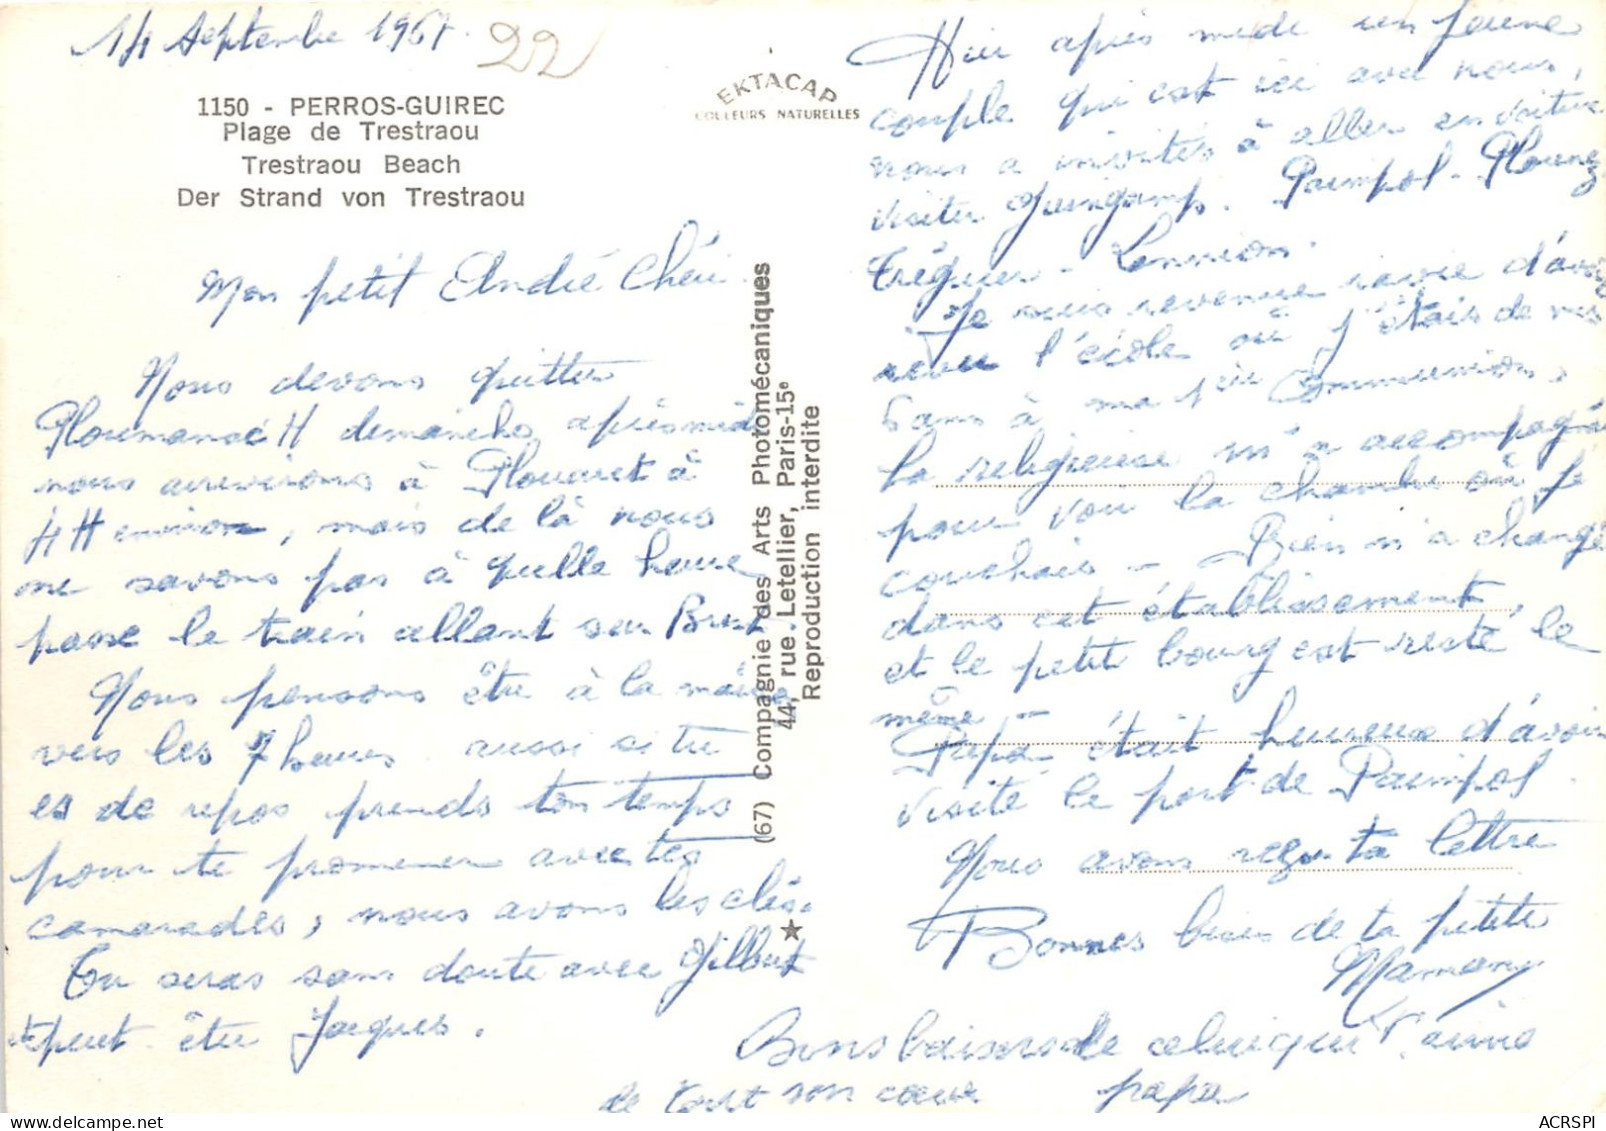 14 Septembre 1967.
22
1150 - PERROS-GUIREC
Plage de Trestraou
Trestraou Beach
Der Strand von Trestraou
EKTACAP
COULEURS NATURELLES
Mon petit André Chéri
Nous devons quitter
Ploumanac'H dimanche après midi
nous arriverons à Plouaret à
4 H environ, mais de là nous
ne savons pas à quelle heure
passe le train allant sur Brest.
Nous pensons être à la maison
vers les 7 heures aussi si tu
es de repos prends ton temps
pour te promener avec tes
camarades, nous avons les clés.
Tu seras sans doute avec Gilbert
et peut être Jacques.
(67) Compagnie des Arts Photomécaniques
44, rue Letellier, Paris-15e
Reproduction interdite
Hier après midi un jeune
couple qui est ici avec nous,
nous a invités à aller en voiture
visiter Guingamp. Paimpol - Plouez
Tréguier - Lannion.
Je suis revenue ravie d'avoir
revu l'école où j'étais de mes
6 ans à ma 1ère Communion,
La religieuse m'a accompagnée
pour voir la chambre où je
couchais - Rien n'a changé
dans cet établissement,
et le petit bourg est resté le
même -
Papa était heureux d'avoir
visité le port de Paimpol.
Nous avons reçu ta lettre
Bonnes bises de ta petite
Maman
Bons baisers de celui qui t'aime
de tout son cœur papa
ACRSPI